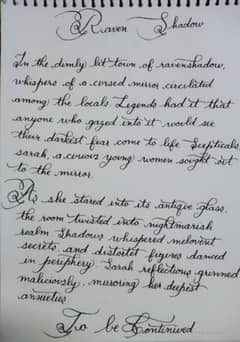 Raven Shadow
In the dimly lit town of ravenshadow,
whispers of a cursed mirror circulated
among the locals. Legends had it that
anyone who gazed into it would see
their darkest fear come to life. Scepticals,
sarah, a curious young women sought out
to the mirror.
As she stared into its antique glass,
the room twisted into nightmarish
realm. Shadows whispered melovent
secrets, and distortet figures danced
in periphery. Sarah reflections grinned
maliciously, mirroring her deepest
anxieties
To be Continued